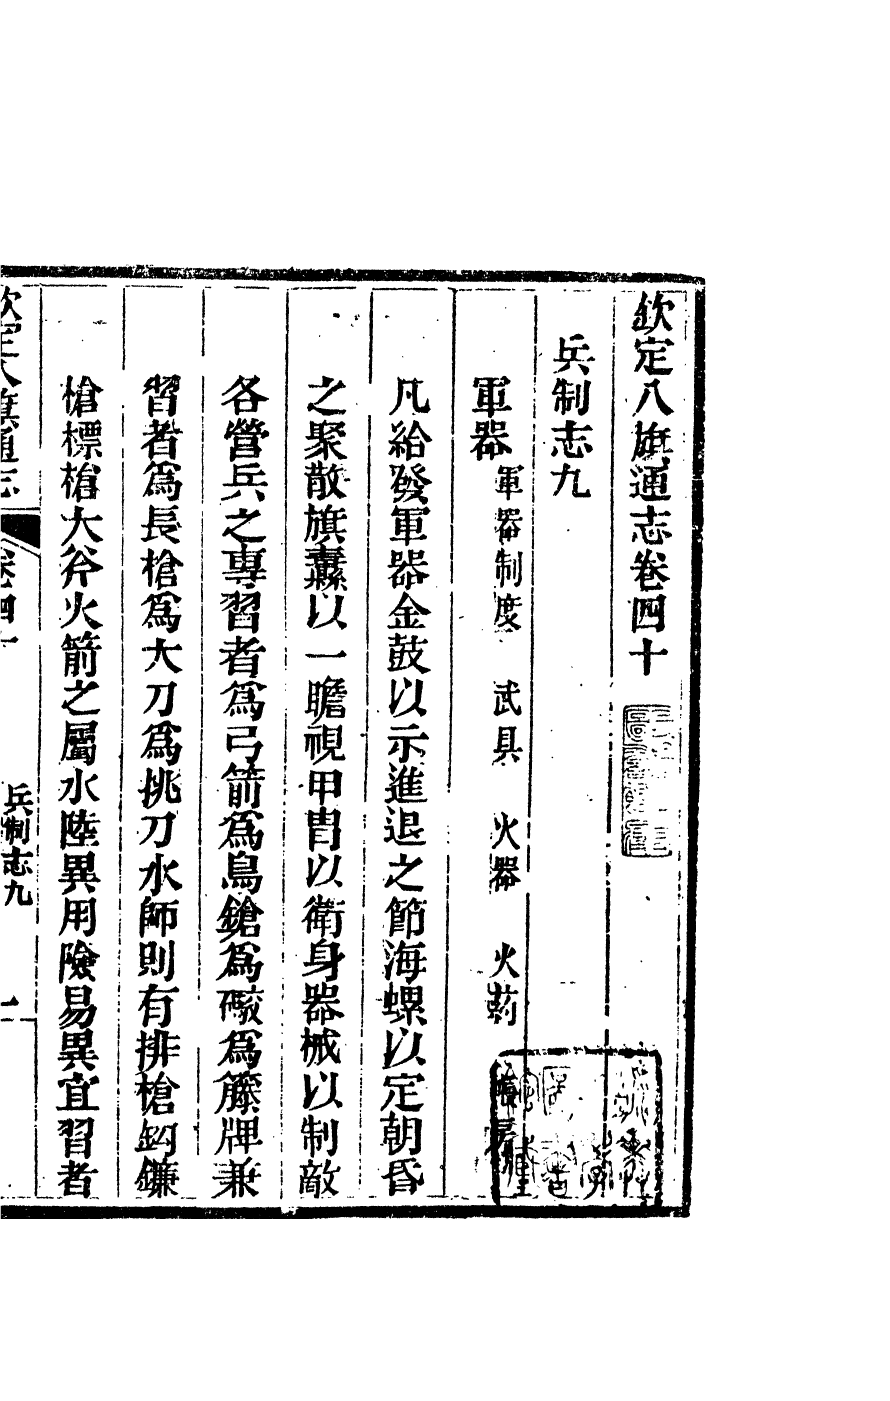 欽定八旗通志卷四十
兵制志九
軍器 軍器制度 武具 火器 火葯 帳房
凡給發軍器金鼓以示進退之節海螺以定朝昏
之聚散旗纛以一瞻視甲胄以衛身器械以制敵
各營兵之專習者為弓箭為鳥鎗為礮為籐牌兼
習者為長槍為大刀為挑刀水師則有排槍鈎鐮
槍標槍大斧火箭之屬水陸異用險易異宜習者
欽定八旗通志 卷四十 兵制志九 一